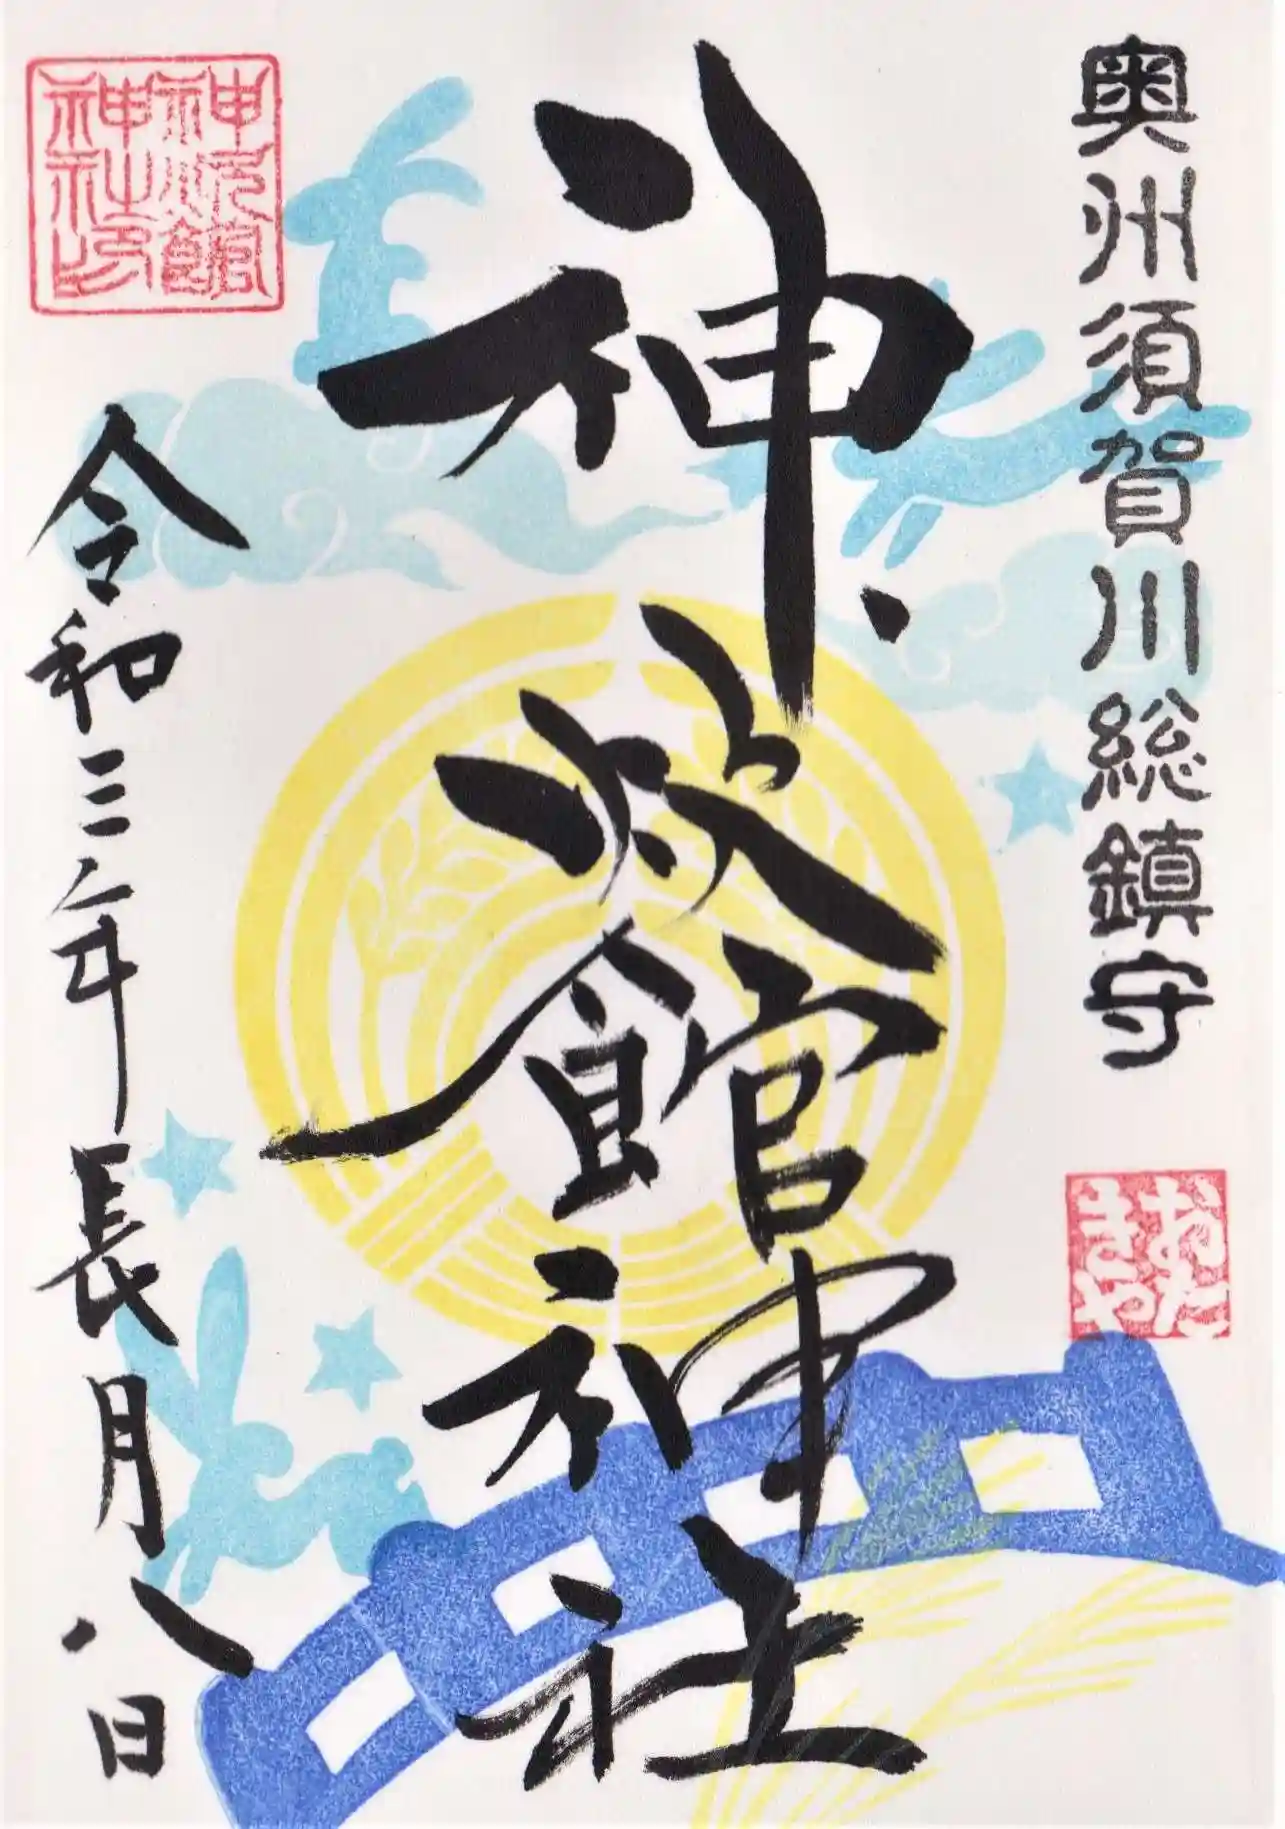 奥州須賀川総鎮守
おたきや
神炊館神社
令和三年長月八日
神炊館
神社印